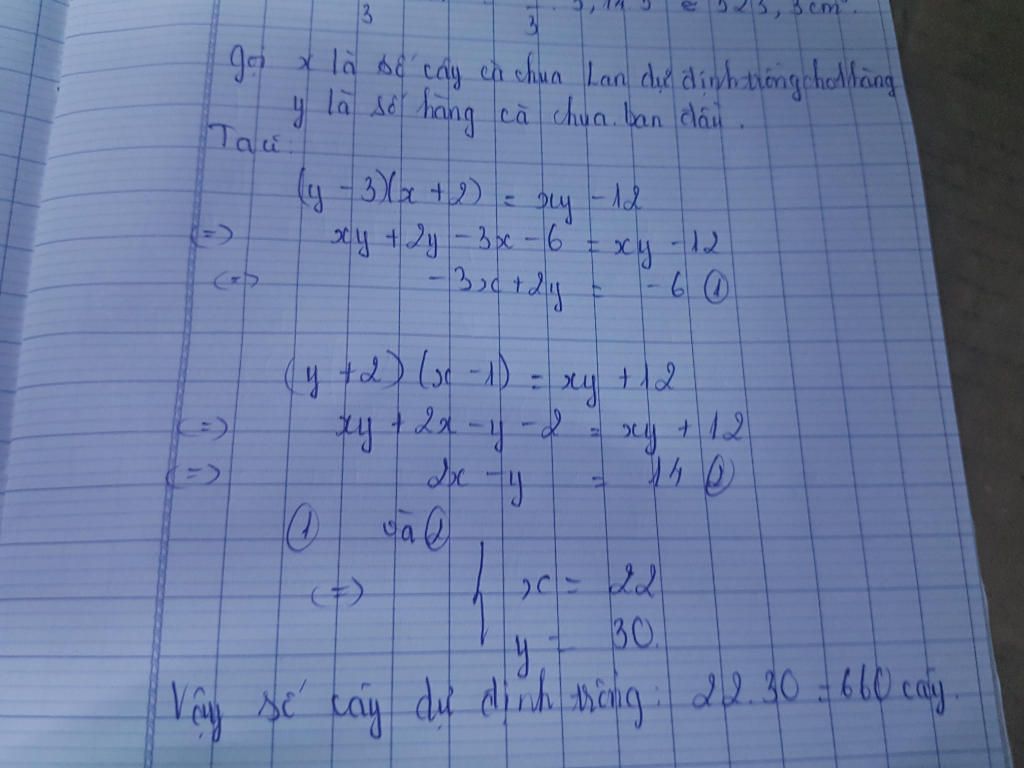 3 3 . 3,14.5 = 523,3cm³.
Gọi x là số cây cà chua Lan dự định trồng cho 1 hàng
y là số hàng cà chua ban đầu.
Ta có:
(y - 3)(x + 2) = xy - 12
<=> xy + 2y - 3x - 6 = xy - 12
<=> -3x + 2y = -6 ①
(y + 2)(x - 1) = xy + 12
<=> xy + 2x - y - 2 = xy + 12
<=> 2x - y = 14 ②
① và ②
<=> { x = 22
y = 30.
Vậy số cây dự định trồng: 22.30 = 660 cây.